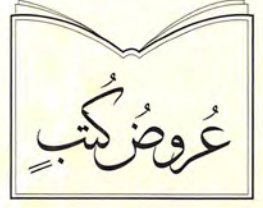 عُروضُ كُتبٍ